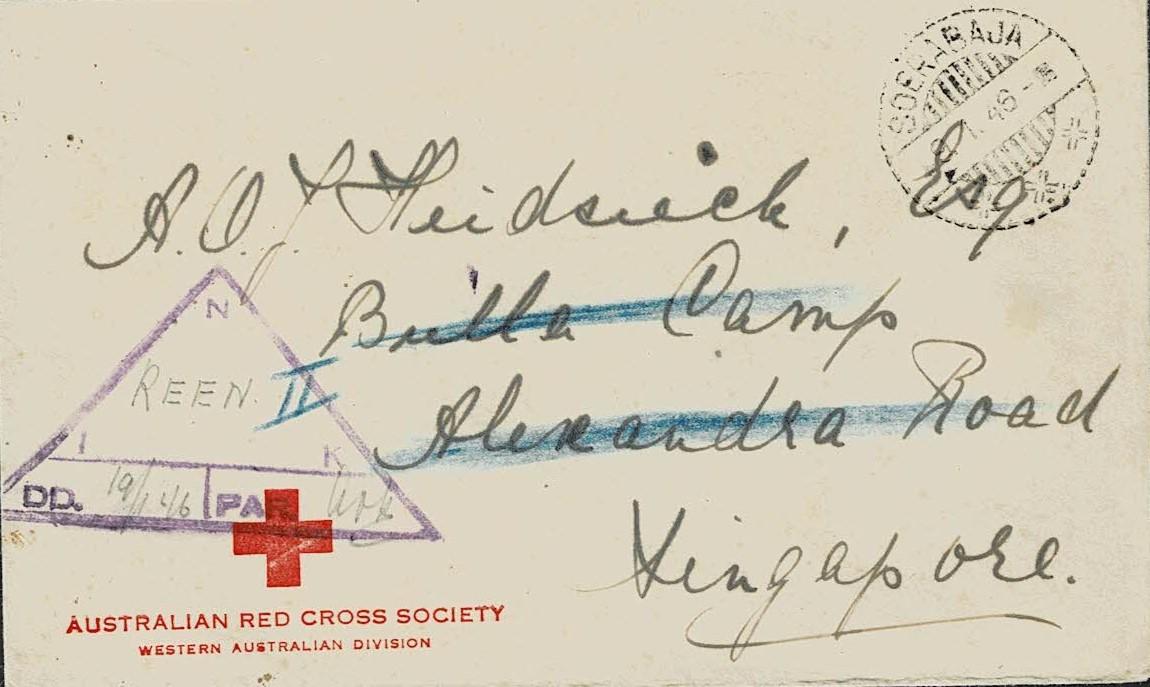 SOERABAJA
1.46
A.O.J Heidsieck, Esq
Bulla Camp
Alexandra Road
Singapore.
N
REEN. II
I K
DD. 19/1/46 PAR
AUSTRALIAN RED CROSS SOCIETY
WESTERN AUSTRALIAN DIVISION